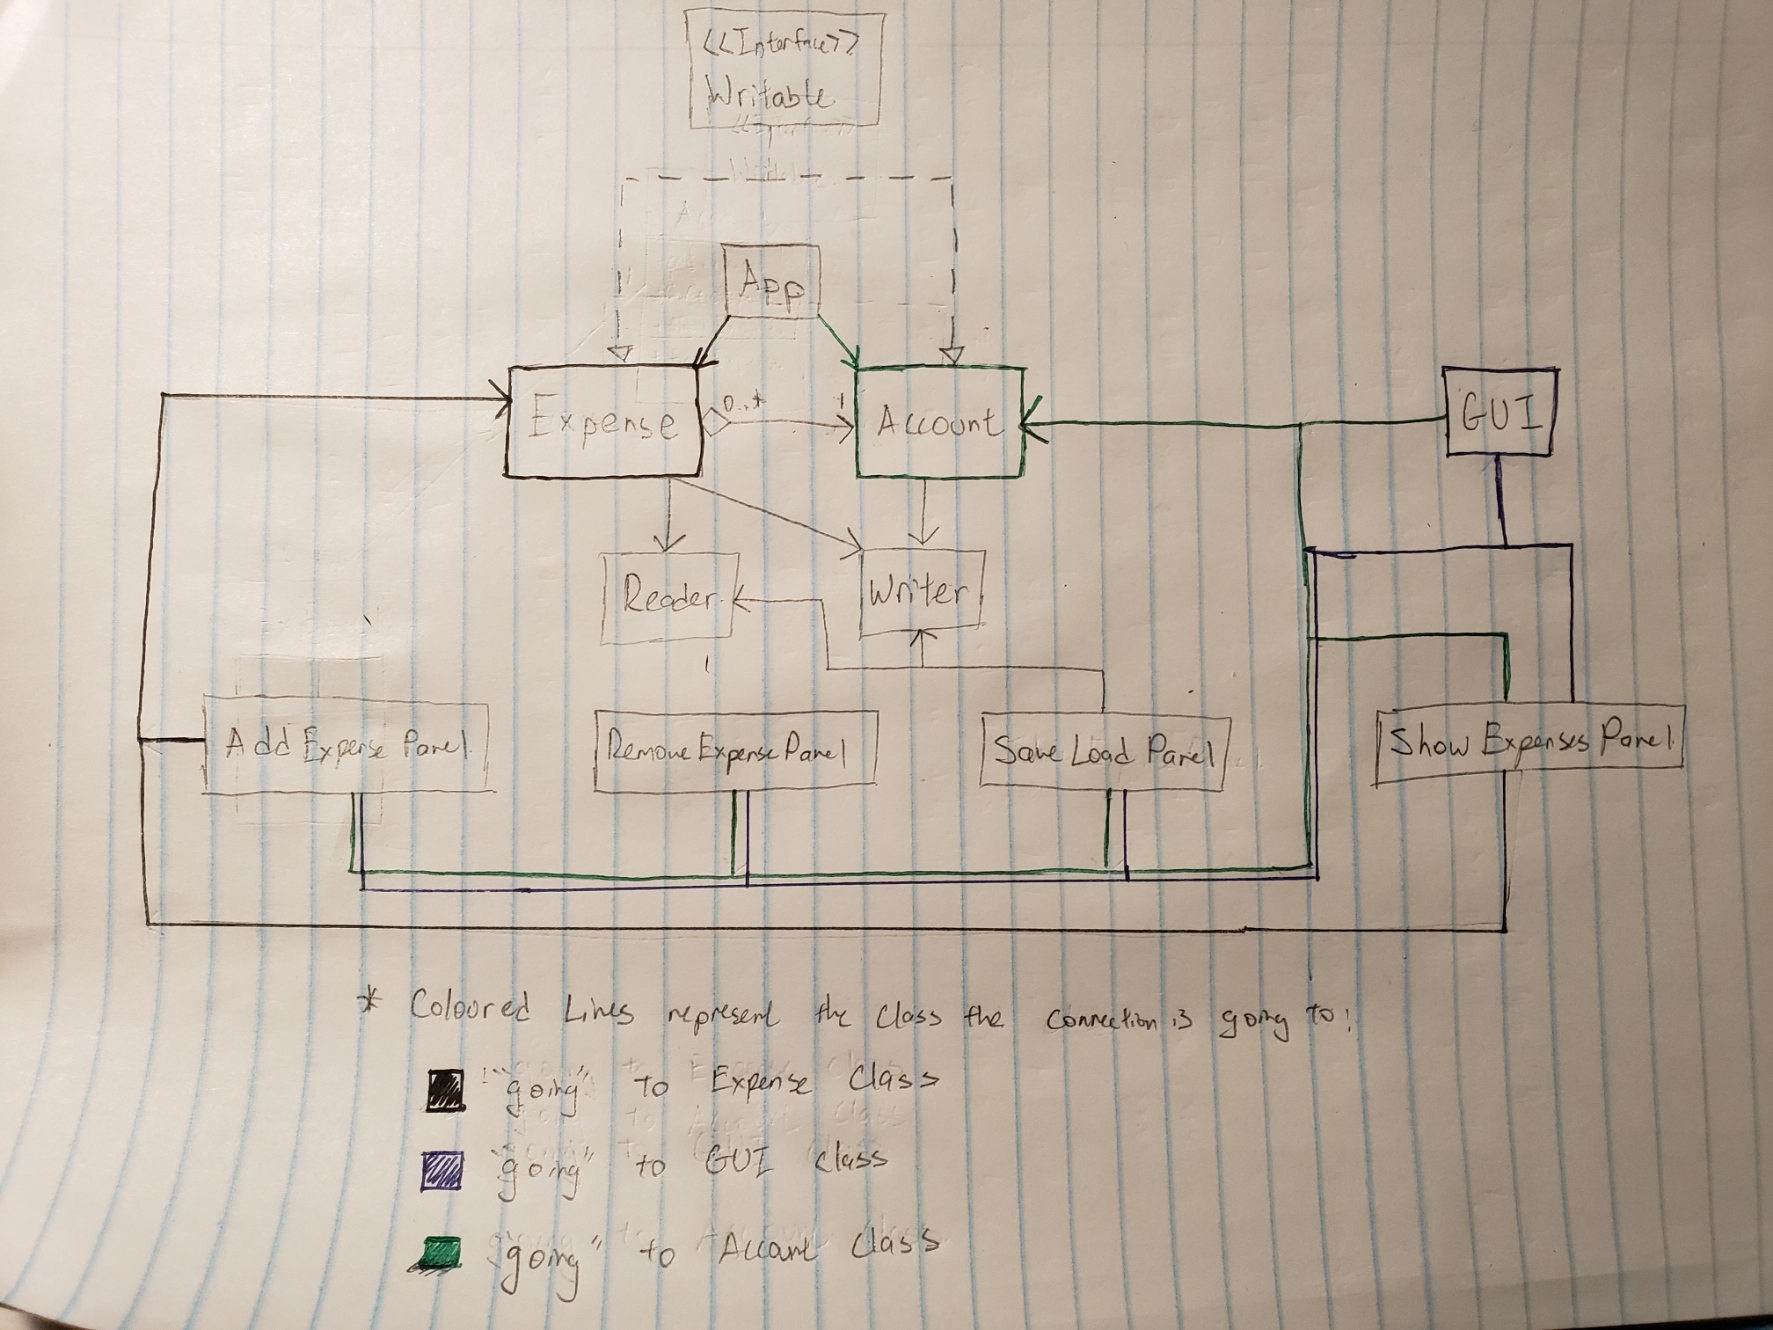 <<Interface>>
Writable
App
Expense
0..*
1
Account
GUI
Reader
Writer
Add Expense Panel
Remove Expense Panel
Save Load Panel
Show Expenses Panel
* Coloured Lines represent the class the connection is going to:
"going" to Expense Class
"going" to GUI class
"going" to Account Class